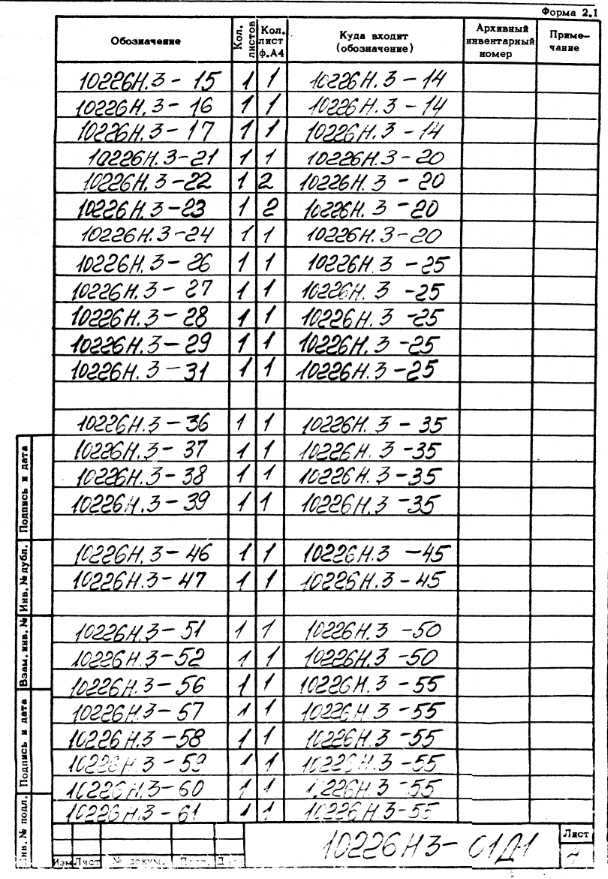 Форма 2.1
Обозначение Кол. листов Кол. лист ф.А4 Куда входит (обозначение) Архивный инвентарный номер Приме-чание
10226Н.3-15 1 1 10226Н.3-14
10226Н.3-16 1 1 10226Н.3-14
10226Н.3-17 1 1 10226Н.3-14
10226Н.3-21 1 1 10226Н.3-20
10226Н.3-22 1 2 10226Н.3-20
10226Н.3-23 1 2 10226Н.3-20
10226Н.3-24 1 1 10226Н.3-20
10226Н.3-26 1 1 10226Н.3-25
10226Н.3-27 1 1 10226Н.3-25
10226Н.3-28 1 1 10226Н.3-25
10226Н.3-29 1 1 10226Н.3-25
10226Н.3-31 1 1 10226Н.3-25
10226Н.3-36 1 1 10226Н.3-35
10226Н.3-37 1 1 10226Н.3-35
10226Н.3-38 1 1 10226Н.3-35
10226Н.3-39 1 1 10226Н.3-35
10226Н.3-46 1 1 10226Н.3-45
10226Н.3-47 1 1 10226Н.3-45
10226Н.3-51 1 1 10226Н.3-50
10226Н.3-52 1 1 10226Н.3-50
10226Н.3-56 1 1 10226Н.3-55
10226Н.3-57 1 1 10226Н.3-55
10226Н.3-58 1 1 10226Н.3-55
10226Н.3-59 1 1 10226Н.3-55
10226Н.3-60 1 1 10226Н.3-55
10226Н.3-61 1 1 10226Н.3-55
Подпись и дата
Инв. № дубл.
Взам. инв. №
Подпись и дата
Инв. № подл.
Изм Лист № докум. Подп. Дата
10226Н3-01Д1
Лист
7